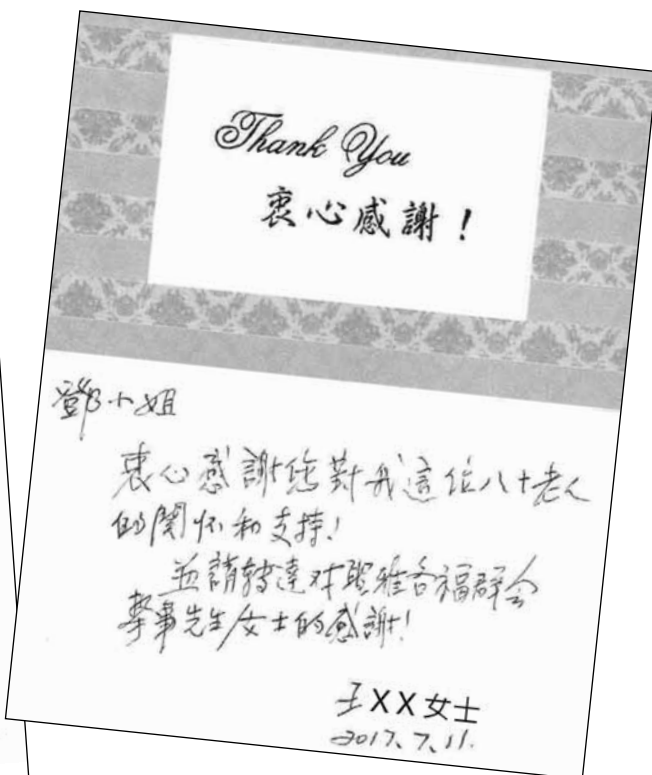 Thank You
衷心感謝！
鄧小姐
衷心感謝您對我這位八十老人
的関怀和支持！
並請轉達对聖雅各福群会
幹事先生/女士的感謝！
王XX女士
2017.7.11.